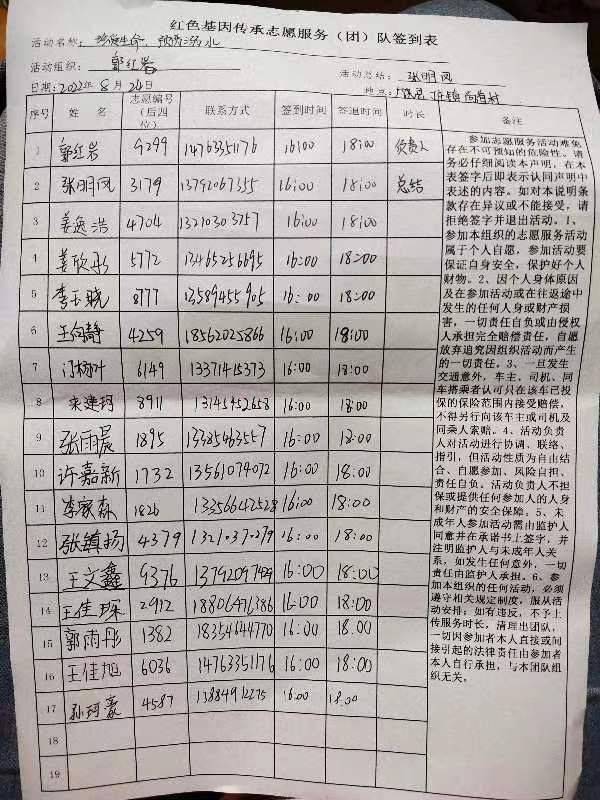 红色基因传承志愿服务（团）队签到表
活动名称：珍爱生命，预防溺水
活动组织：郭红岩 活动总结：张明凤
日期：2022年8月24日 地点：
序号 姓名 志愿编号（后四位） 联系方式 签到时间 签退时间 时长 备注
1 郭红岩 9299 14763351176 16:00 18:00 负责人
2 张明凤 3179 13792067355 16:00 18:00 总结
3 姜逸浩 4704 13210303757 16:00 18:00
4 姜欣彤 5772 13465256695 16:00 18:00
5 李玉晓 8777 13589455905 16:00 18:00
6 王向静 4259 18562025866 16:00 18:00
7 门杨叶 6149 13371415373 16:00 18:00
8 宋建珂 8911 13145952658 16:00 18:00
9 张雨晨 1895 13385463557 16:00 18:00
10 许嘉新 1732 13561074072 16:00 18:00
11 李家森 1826 13356642528 16:00 18:00
12 张镇扬 4379 13210370279 16:00 18:00
13 王文鑫 9376 16:00 18:00
14 王佳琛 2912 18806476386 16:00 18:00
15 郭雨彤 1382 18354644770 16:00 18:00
16 王佳旭 6036 14763351176 16:00 18:00
17 孙珂豪 4587 13884912275 16:00 18:00
18
19
参加志愿服务活动难免
存在不可预知的危险性。请
务必仔细阅读本声明，在本
表签字后即表示认同声明中
表述的内容。如对本说明条
款存在异议或不能接受，请
拒绝签字并退出活动。1、
参加本组织的志愿服务活动
属于个人自愿，参加活动要
保证自身安全，保护好个人
财物。2、因个人身体原因
及在参加活动或在往返途中
发生的任何人身或财产损
害，一切责任自负或由侵权
人承担完全赔偿责任，自愿
放弃追究因组织活动而产生
的一切责任。3、一旦发生
交通意外，车主、司机、同
车搭乘者认可只在该车已投
保的保险范围内接受赔偿，
不得另行向该车主或司机及
同乘人索赔。4、活动负责
人对活动进行协调、联络、
指引，但活动性质为自由结
合、自愿参加、风险自担、
责任自负。活动负责人不担
保或提供任何参加人的人身
和财产的安全保障。5、未
成年人参加活动需由监护人
同意并在承诺书上签字，并
注明监护人与未成年人关
系，如发生任何意外，一切
责任由监护人承担。6、参
加本组织的任何活动，必须
遵守相关规定制度。服从活
动安排；如有违反，不予上
传服务时长，清理出团队，
一切因参加者本人直接或间
接引起的法律责任由参加者
本人自行承担，与本团队组
织无关。